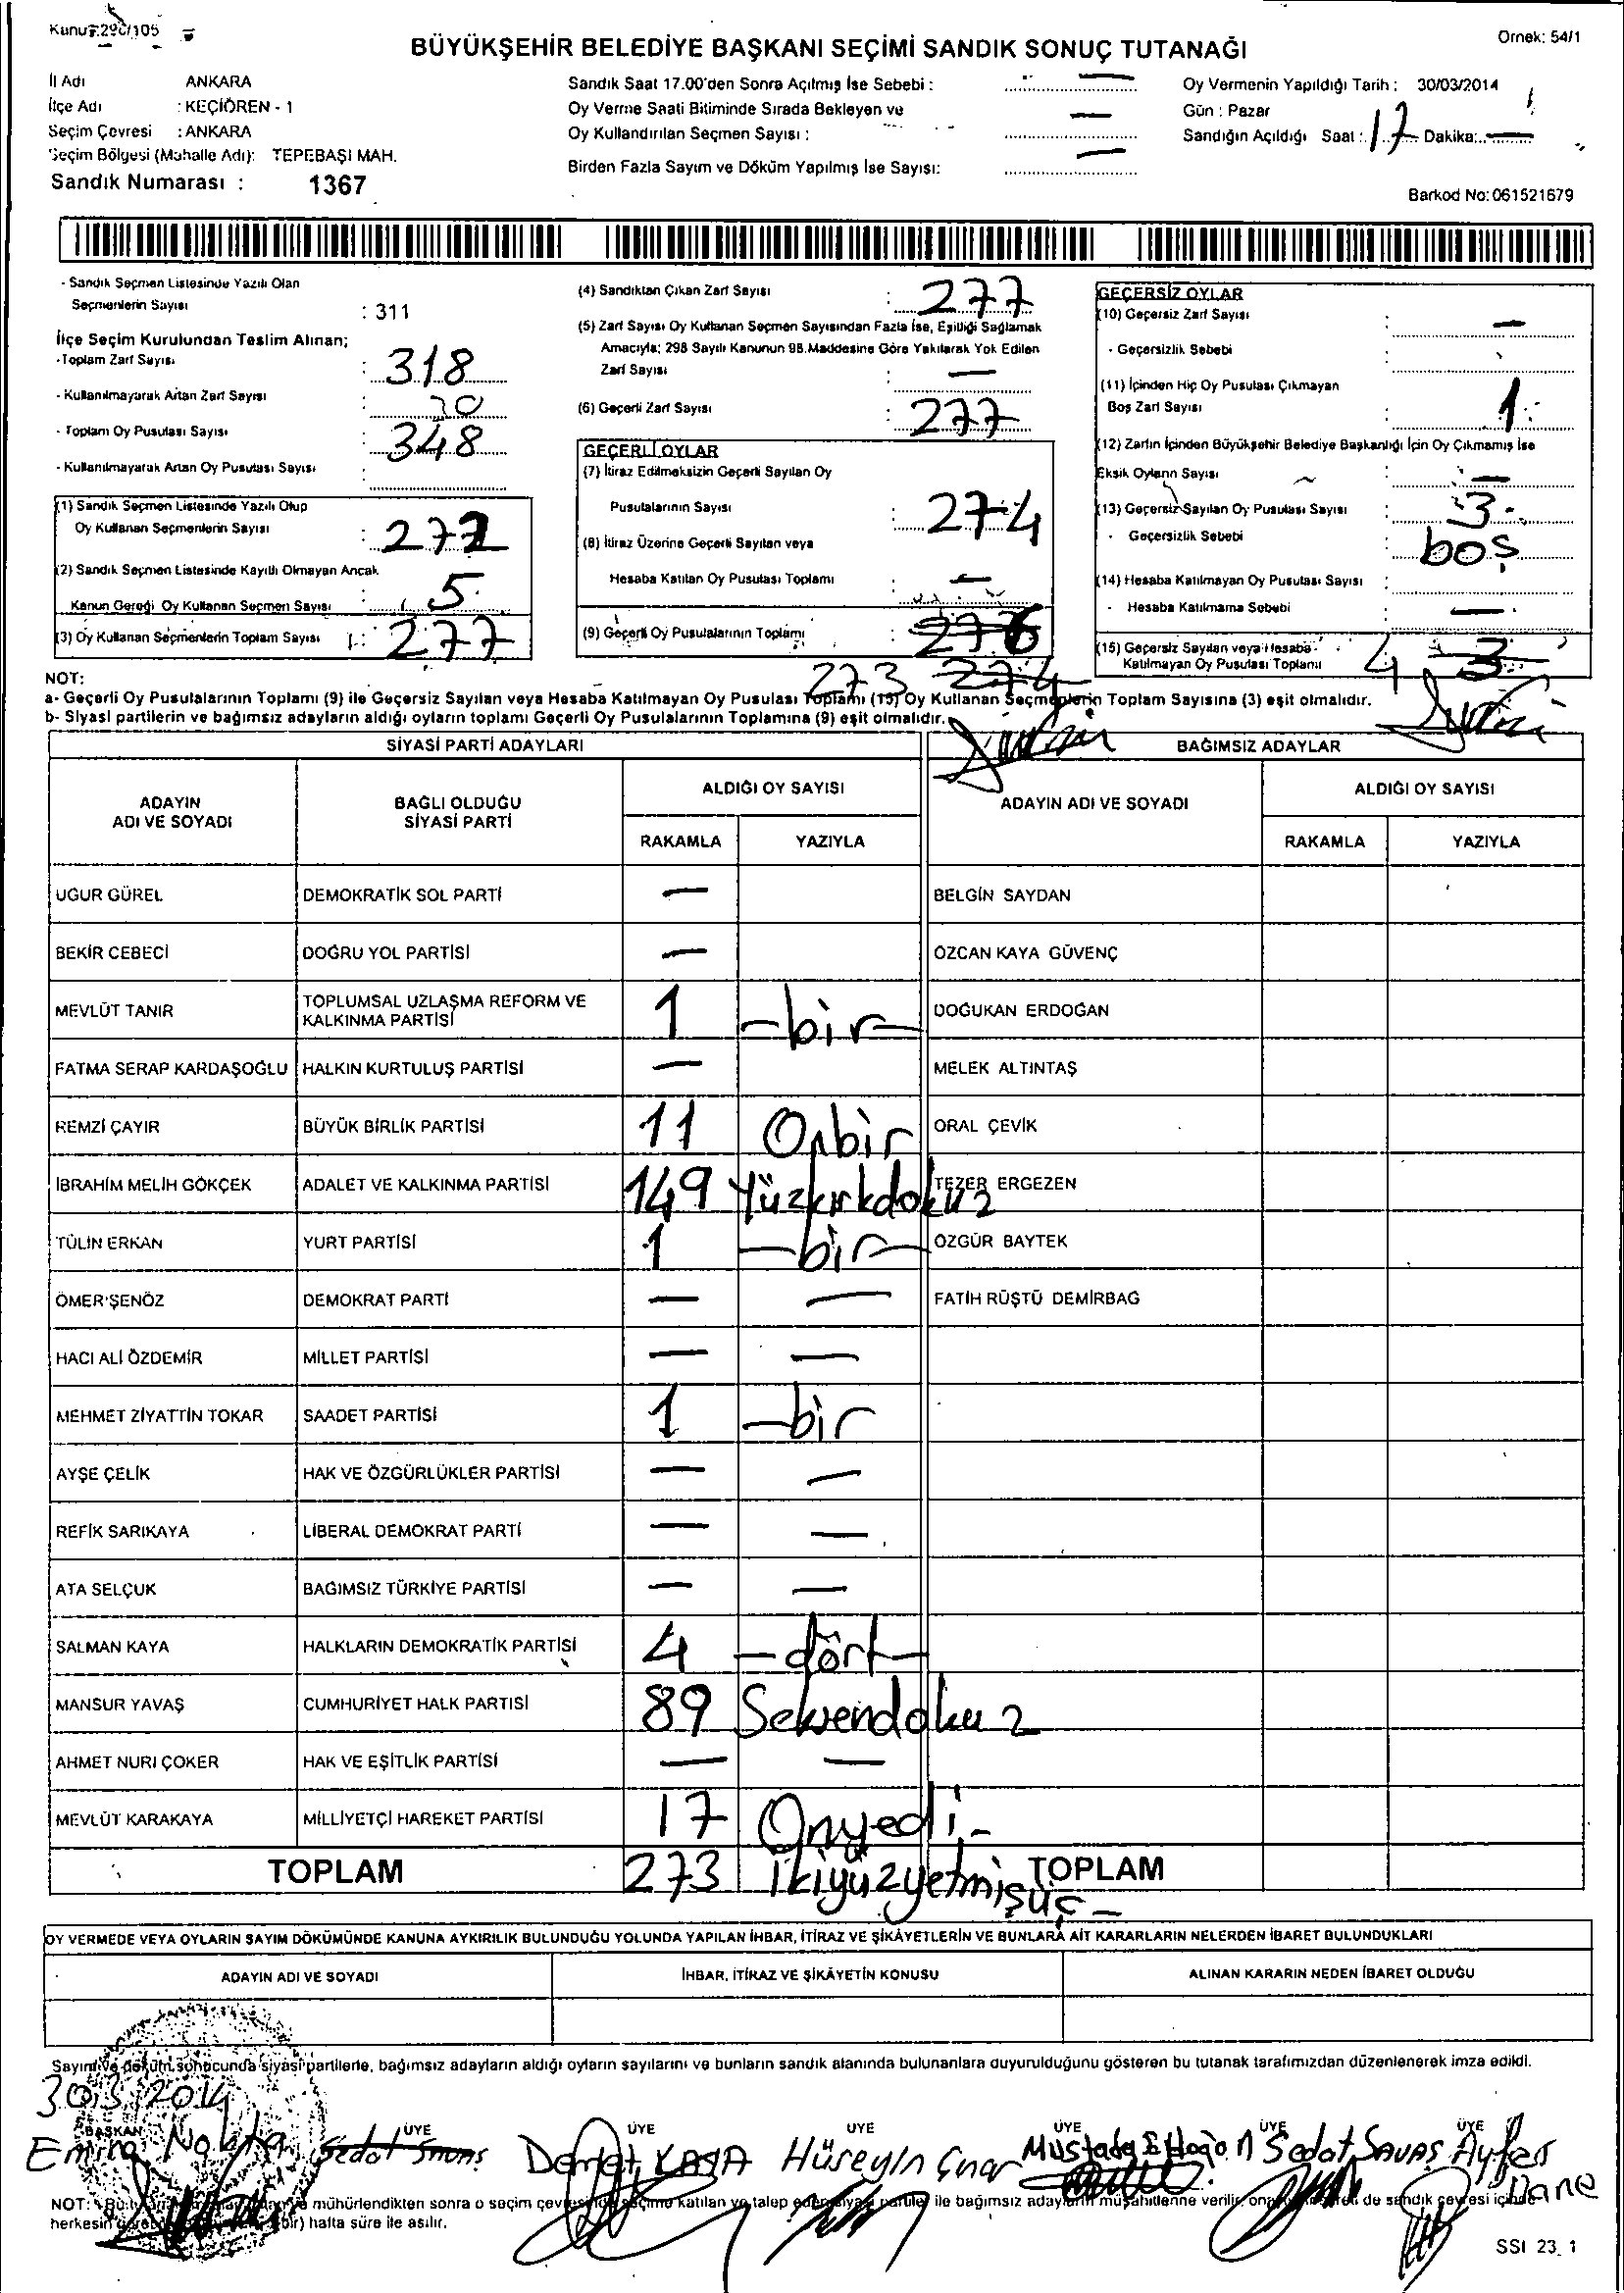 Örnek: 54/1
BÜYÜKŞEHİR BELEDİYE BAŞKANI SEÇİMİ SANDIK SONUÇ TUTANAĞI
İl Adı ANKARA
İlçe Adı : KEÇİÖREN - 1
Seçim Çevresi : ANKARA
Seçim Bölgesi (Mahalle Adı): TEPEBAŞI MAH.
Sandık Numarası : 1367
Sandık Saat 17.00'den Sonra Açılmış İse Sebebi : —
Oy Verme Saati Bitiminde Sırada Bekleyen ve
Oy Kullandırılan Seçmen Sayısı : —
Birden Fazla Sayım ve Döküm Yapılmış İse Sayısı: —
Oy Vermenin Yapıldığı Tarih : 30/03/2014
Gün : Pazar
Sandığın Açıldığı Saat : 17 Dakika: —
Barkod No: 061521679
- Sandık Seçmen Listesinde Yazılı Olan
Seçmenlerin Sayısı : 311
İlçe Seçim Kurulundan Teslim Alınan;
- Toplam Zarf Sayısı : 318
- Kullanılmayarak Artan Zarf Sayısı :
- Toplam Oy Pusulası Sayısı : 348
- Kullanılmayarak Artan Oy Pusulası Sayısı :
(1) Sandık Seçmen Listesinde Yazılı Olup
Oy Kullanan Seçmenlerin Sayısı : 272
(2) Sandık Seçmen Listesinde Kayıtlı Olmayan Ancak
Kanun Gereği Oy Kullanan Seçmen Sayısı : 5
(3) Oy Kullanan Seçmenlerin Toplam Sayısı : 277
(4) Sandıktan Çıkan Zarf Sayısı : 277
(5) Zarf Sayısı Oy Kullanan Seçmen Sayısından Fazla İse, Eşitliği Sağlamak
Amacıyla; 298 Sayılı Kanunun 98.Maddesine Göre Yakılarak Yok Edilen
Zarf Sayısı : —
(6) Geçerli Zarf Sayısı : 277
GEÇERLİ OYLAR
(7) İtiraz Edilmeksizin Geçerli Sayılan Oy
Pusulalarının Sayısı : 274
(8) İtiraz Üzerine Geçerli Sayılan veya
Hesaba Katılan Oy Pusulası Toplamı : —
(9) Geçerli Oy Pusulalarının Toplamı : 276
273 274
GEÇERSİZ OYLAR
(10) Geçersiz Zarf Sayısı : —
- Geçersizlik Sebebi :
(11) İçinden Hiç Oy Pusulası Çıkmayan
Boş Zarf Sayısı : 1
(12) Zarfın İçinden Büyükşehir Belediye Başkanlığı İçin Oy Çıkmamış İse
Eksik Oyların Sayısı : —
(13) Geçersiz Sayılan Oy Pusulası Sayısı : 3
- Geçersizlik Sebebi : boş
(14) Hesaba Katılmayan Oy Pusulası Sayısı :
- Hesaba Katılmama Sebebi : —
(15) Geçersiz Sayılan veya Hesaba
Katılmayan Oy Pusulası Toplamı 4 3
NOT:
a- Geçerli Oy Pusulalarının Toplamı (9) ile Geçersiz Sayılan veya Hesaba Katılmayan Oy Pusulası Toplamı (15) Oy Kullanan Seçmenlerin Toplam Sayısına (3) eşit olmalıdır.
b- Siyasi partilerin ve bağımsız adayların aldığı oyların toplamı Geçerli Oy Pusulalarının Toplamına (9) eşit olmalıdır.
SİYASİ PARTİ ADAYLARI BAĞIMSIZ ADAYLAR
ADAYIN ADI VE SOYADI BAĞLI OLDUĞU SİYASİ PARTİ ALDIĞI OY SAYISI ADAYIN ADI VE SOYADI ALDIĞI OY SAYISI
RAKAMLA YAZIYLA RAKAMLA YAZIYLA
UĞUR GÜREL DEMOKRATİK SOL PARTİ — BELGİN SAYDAN
BEKİR CEBECİ DOĞRU YOL PARTİSİ — ÖZCAN KAYA GÜVENÇ
MEVLÜT TANIR TOPLUMSAL UZLAŞMA REFORM VE KALKINMA PARTİSİ 1 —bir— DOĞUKAN ERDOĞAN
FATMA SERAP KARDAŞOĞLU HALKIN KURTULUŞ PARTİSİ — MELEK ALTINTAŞ
REMZİ ÇAYIR BÜYÜK BİRLİK PARTİSİ 11 Onbir ORAL ÇEVİK
İBRAHİM MELİH GÖKÇEK ADALET VE KALKINMA PARTİSİ 149 Yüzkırkdokuz TEZER ERGEZEN
TÜLİN ERKAN YURT PARTİSİ 1 —bir— ÖZGÜR BAYTEK
ÖMER ŞENÖZ DEMOKRAT PARTİ — — FATİH RÜŞTÜ DEMİRBAĞ
HACI ALİ ÖZDEMİR MİLLET PARTİSİ — —
MEHMET ZİYATTİN TOKAR SAADET PARTİSİ 1 —bir
AYŞE ÇELİK HAK VE ÖZGÜRLÜKLER PARTİSİ — —
REFİK SARIKAYA LİBERAL DEMOKRAT PARTİ — —
ATA SELÇUK BAĞIMSIZ TÜRKİYE PARTİSİ — —
SALMAN KAYA HALKLARIN DEMOKRATİK PARTİSİ 4 —dört—
MANSUR YAVAŞ CUMHURİYET HALK PARTİSİ 89 Seksendokuz
AHMET NURİ ÇOKER HAK VE EŞİTLİK PARTİSİ — —
MEVLÜT KARAKAYA MİLLİYETÇİ HAREKET PARTİSİ 17 Onyedi
TOPLAM 273 İkiyüzyetmişüç— TOPLAM
OY VERMEDE VEYA OYLARIN SAYIM DÖKÜMÜNDE KANUNA AYKIRILIK BULUNDUĞU YOLUNDA YAPILAN İHBAR, İTİRAZ VE ŞİKÂYETLERİN VE BUNLARA AİT KARARLARIN NELERDEN İBARET BULUNDUKLARI
ADAYIN ADI VE SOYADI İHBAR, İTİRAZ VE ŞİKÂYETİN KONUSU ALINAN KARARIN NEDEN İBARET OLDUĞU
Sayım ve döküm sonucunda siyasi partilerle, bağımsız adayların aldığı oyların sayılarını ve bunların sandık alanında bulunanlara duyurulduğunu gösteren bu tutanak tarafımızdan düzenlenerek imza edildi.
30.3.2014
BAŞKAN ÜYE ÜYE ÜYE ÜYE ÜYE ÜYE
Sedat Savaş Demet KAYA Hüseyin Mustafa Sedat SAVAŞ Ayfer
mühürlendikten sonra o seçim çevresinde seçime katılan ve talep eden siyasi partiler ile bağımsız adayların müşahitlerine verilir, de sandık çevresi içinde
herkesin bir) hafta süre ile asılır.
SSI 23_1